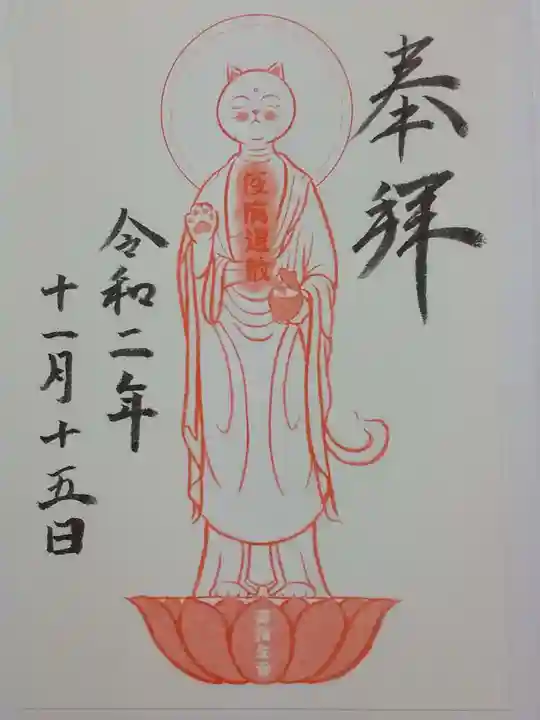 奉拝
疫病退散
令和二年
十一月十五日